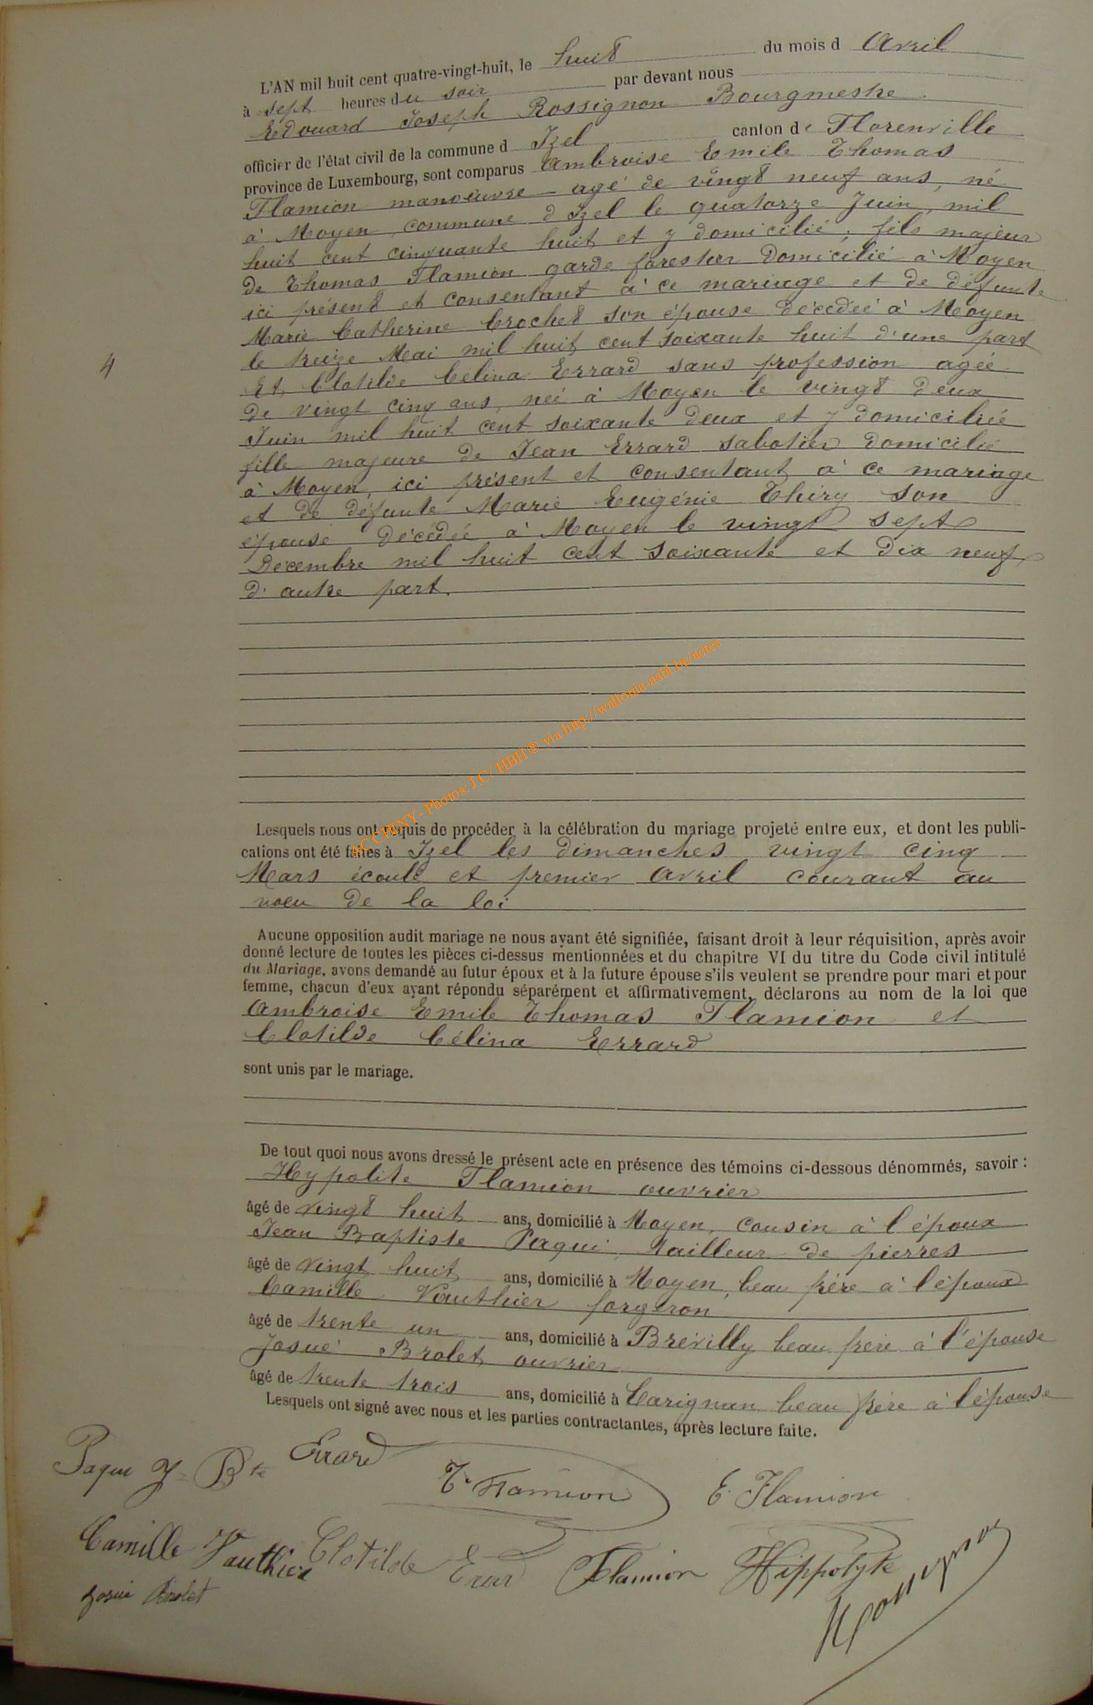 L'AN mil huit cent quatre-vingt-huit, le huit du mois d Avril
à sept heures du soir par devant nous
Edouard Joseph Rossignon Bourgmestre
officier de l'état civil de la commune d Izel canton de Florenville
province de Luxembourg, sont comparus Ambroise Emile Thomas
Flamion manœuvre agé de vingt neuf ans, né
à Moyen commune d Izel le quatorze Juin mil
huit cent cinquante huit et y domicilié, fils majeur
de Thomas Flamion garde forestier domicilié à Moyen
ici présent et consentant à ce mariage et de défunte
Marie Catherine Crochet son épouse décédée à Moyen
le treize Mai mil huit cent soixante huit d'une part
4
Et Clotilde Célina Errard sans profession agée
de vingt cinq ans, née à Moyen le vingt deux
Juin mil huit cent soixante deux et y domiciliée
fille majeure de Jean Errard sabotier domicilié
à Moyen, ici présent et consentant à ce mariage
et de défunte Marie Eugénie Thiry son
épouse décédée à Moyen le vingt sept
Décembre mil huit cent soixante et dix neuf
d'autre part.
Lesquels nous ont requis de procéder à la célébration du mariage projeté entre eux, et dont les publi-
cations ont été faites à Izel les dimanches vingt cinq
Mars écoulé et premier Avril courant au
vœu de la loi
Aucune opposition audit mariage ne nous ayant été signifiée, faisant droit à leur réquisition, après avoir
donné lecture de toutes les pièces ci-dessus mentionnées et du chapitre VI du titre du Code civil intitulé
du Mariage, avons demandé au futur époux et à la future épouse s'ils veulent se prendre pour mari et pour
femme, chacun d'eux ayant répondu séparément et affirmativement, déclarons au nom de la loi que
Ambroise Emile Thomas Flamion et
Clotilde Célina Errard
sont unis par le mariage.
De tout quoi nous avons dressé le présent acte en présence des témoins ci-dessous dénommés, savoir :
Hypolite Flamion ouvrier
âgé de vingt huit ans, domicilié à Moyen, cousin à l'époux
Jean Baptiste Paqui, tailleur de pierres
âgé de vingt huit ans, domicilié à Moyen, beau frère à l'époux
Camille Vauthier forgeron
âgé de trente un ans, domicilié à Brévilly beau frère à l'épouse
Josué Brolet ouvrier
âgé de trente trois ans, domicilié à Carignan beau frère à l'épouse
Lesquels ont signé avec nous et les parties contractantes, après lecture faite.
Paqui J- Bte Errard T. Flamion E. Flamion
Camille Vauthier Clotilde Erard Flamion Hippolyte
Josué Brolet Rossignon